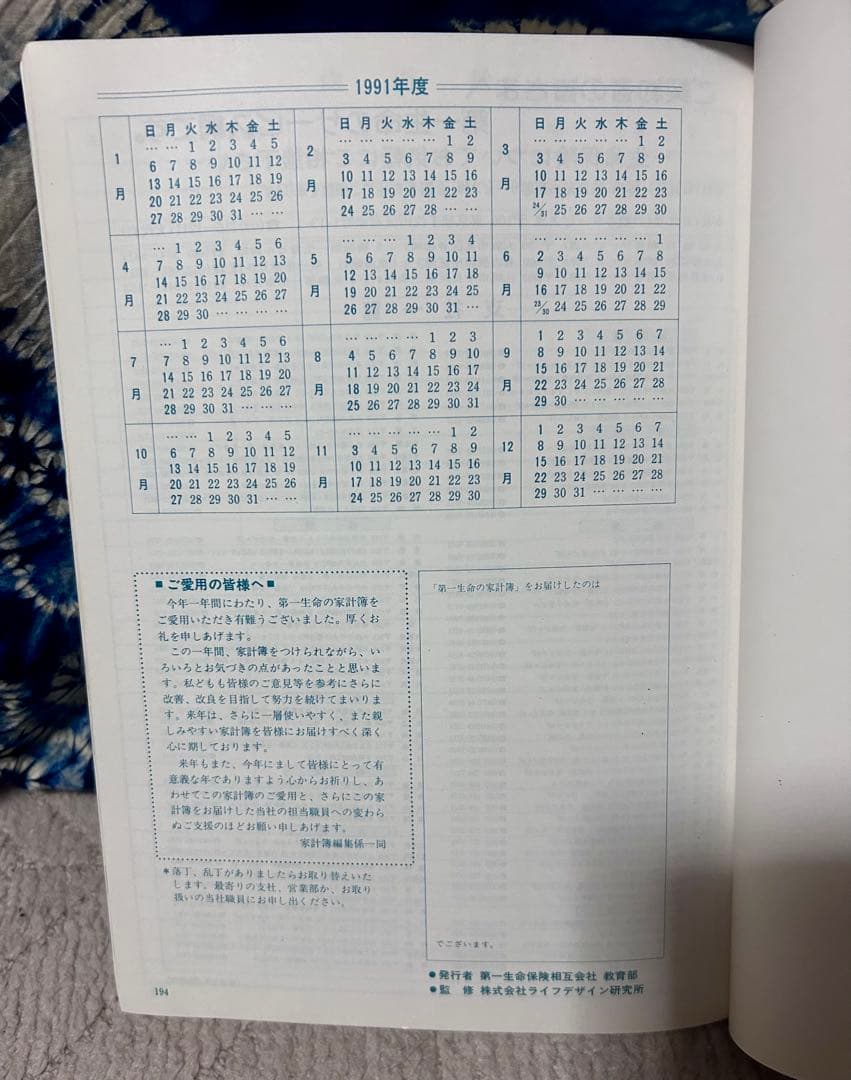 1991年度
1月
日 月 火 水 木 金 土
… … 1 2 3 4 5
6 7 8 9 10 11 12
13 14 15 16 17 18 19
20 21 22 23 24 25 26
27 28 29 30 31 … …
2月
日 月 火 水 木 金 土
… … … … … 1 2
3 4 5 6 7 8 9
10 11 12 13 14 15 16
17 18 19 20 21 22 23
24 25 26 27 28 … …
3月
日 月 火 水 木 金 土
… … … … … 1 2
3 4 5 6 7 8 9
10 11 12 13 14 15 16
17 18 19 20 21 22 23
24/31 25 26 27 28 29 30
4月
… 1 2 3 4 5 6
7 8 9 10 11 12 13
14 15 16 17 18 19 20
21 22 23 24 25 26 27
28 29 30 … … … …
5月
… … … 1 2 3 4
5 6 7 8 9 10 11
12 13 14 15 16 17 18
19 20 21 22 23 24 25
26 27 28 29 30 31 …
6月
… … … … … … 1
2 3 4 5 6 7 8
9 10 11 12 13 14 15
16 17 18 19 20 21 22
23/30 24 25 26 27 28 29
7月
… 1 2 3 4 5 6
7 8 9 10 11 12 13
14 15 16 17 18 19 20
21 22 23 24 25 26 27
28 29 30 31 … … …
8月
… … … … 1 2 3
4 5 6 7 8 9 10
11 12 13 14 15 16 17
18 19 20 21 22 23 24
25 26 27 28 29 30 31
9月
1 2 3 4 5 6 7
8 9 10 11 12 13 14
15 16 17 18 19 20 21
22 23 24 25 26 27 28
29 30 … … … … …
10月
… … 1 2 3 4 5
6 7 8 9 10 11 12
13 14 15 16 17 18 19
20 21 22 23 24 25 26
27 28 29 30 31 … …
11月
… … … … … 1 2
3 4 5 6 7 8 9
10 11 12 13 14 15 16
17 18 19 20 21 22 23
24 25 26 27 28 29 30
12月
1 2 3 4 5 6 7
8 9 10 11 12 13 14
15 16 17 18 19 20 21
22 23 24 25 26 27 28
29 30 31 … … … …
■ご愛用の皆様へ■
今年一年間にわたり、第一生命の家計簿を
ご愛用いただき有難うございました。厚くお
礼を申しあげます。
この一年間、家計簿をつけられながら、い
ろいろとお気づきの点があったことと思いま
す。私どもも皆様のご意見等を参考にさらに
改善、改良を目指して努力を続けてまいりま
す。来年は、さらに一層使いやすく、また親
しみやすい家計簿を皆様にお届けすべく深く
心に期しております。
来年もまた、今年にまして皆様にとって有
意義な年でありますよう心からお祈りし、あ
わせてこの家計簿のご愛用と、さらにこの家
計簿をお届けした当社の担当職員への変わら
ぬご支援のほどお願い申しあげます。
家計簿編集係一同
*落丁、乱丁がありましたらお取り替えいた
します。最寄りの支社、営業部か、お取り
扱いの当社職員にお申し出ください。
「第一生命の家計簿」をお届けしたのは
でございます。
●発行者 第一生命保険相互会社 教育部
●監 修 株式会社ライフデザイン研究所
194